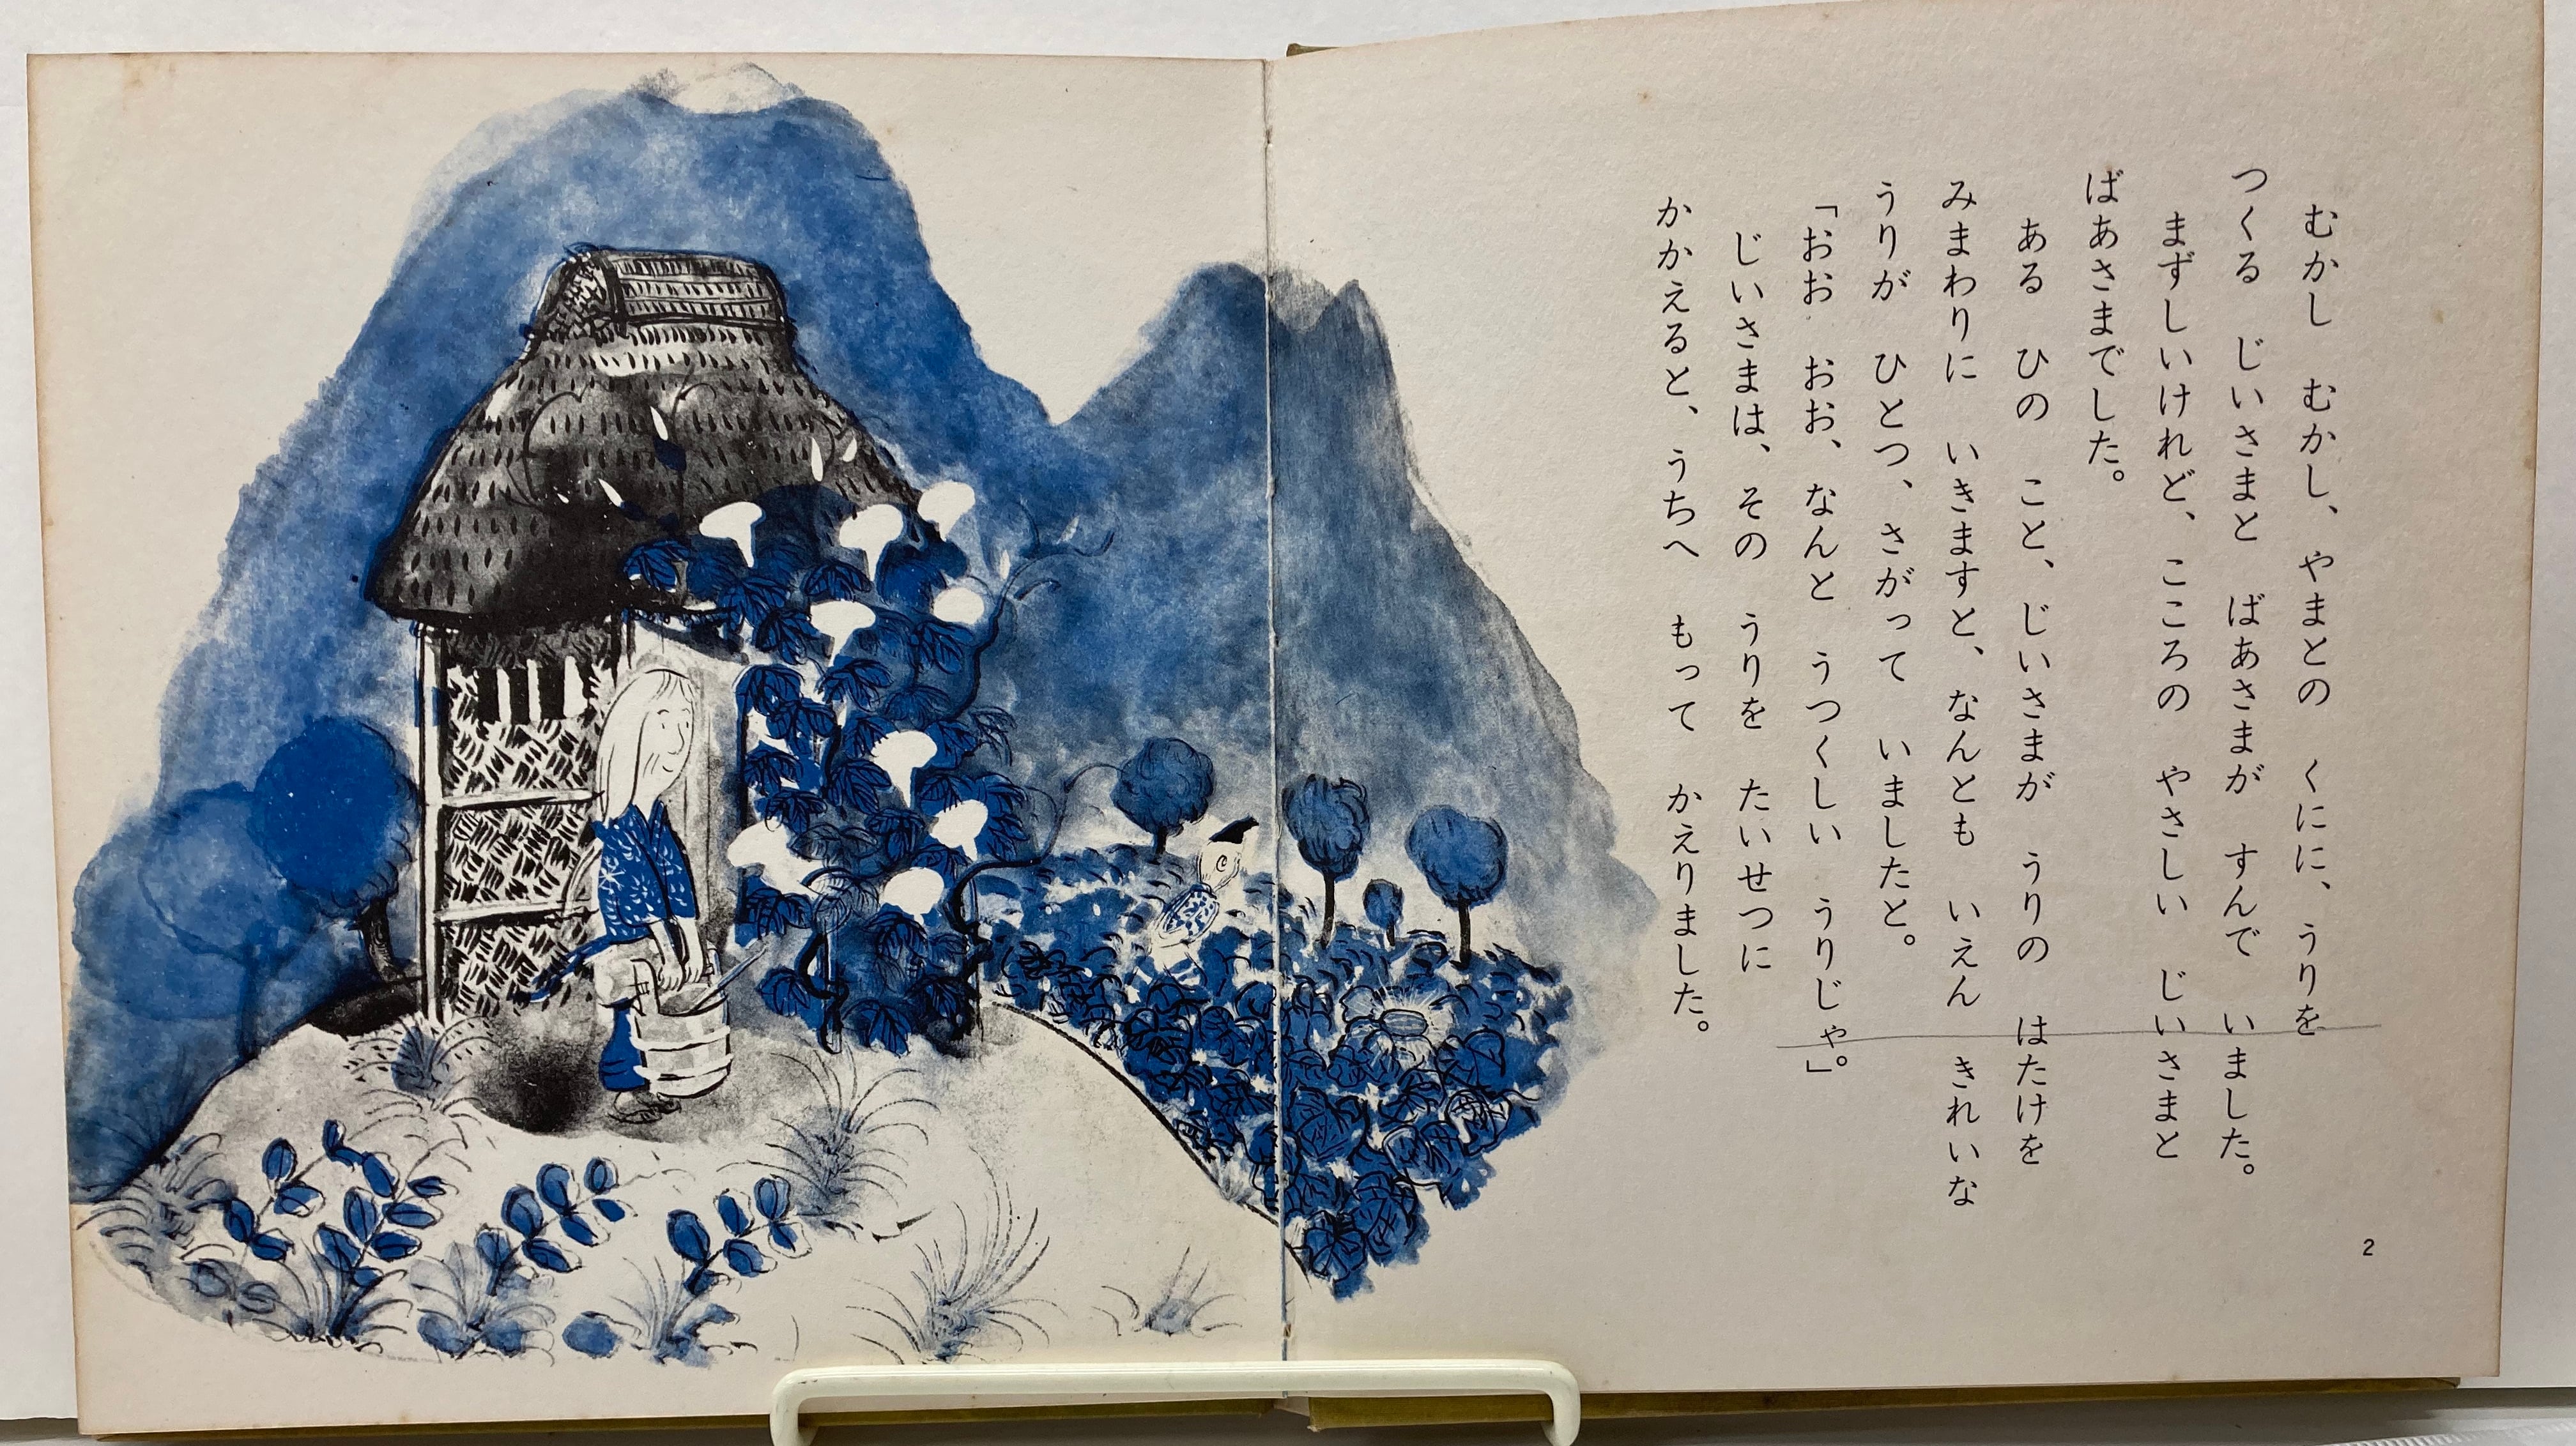 むかし むかし、やまとの くにに、うりを
つくる じいさまと ばあさまが すんで いました。
まずしいけれど、こころの やさしい じいさまと
ばあさまでした。
ある ひの こと、じいさまが うりの はたけを
みまわりに いきますと、なんとも いえん きれいな
うりが ひとつ、さがって いましたと。
「おお おお、なんと うつくしい うりじゃ。」
じいさまは、その うりを たいせつに
かかえると、うちへ もって かえりました。
2